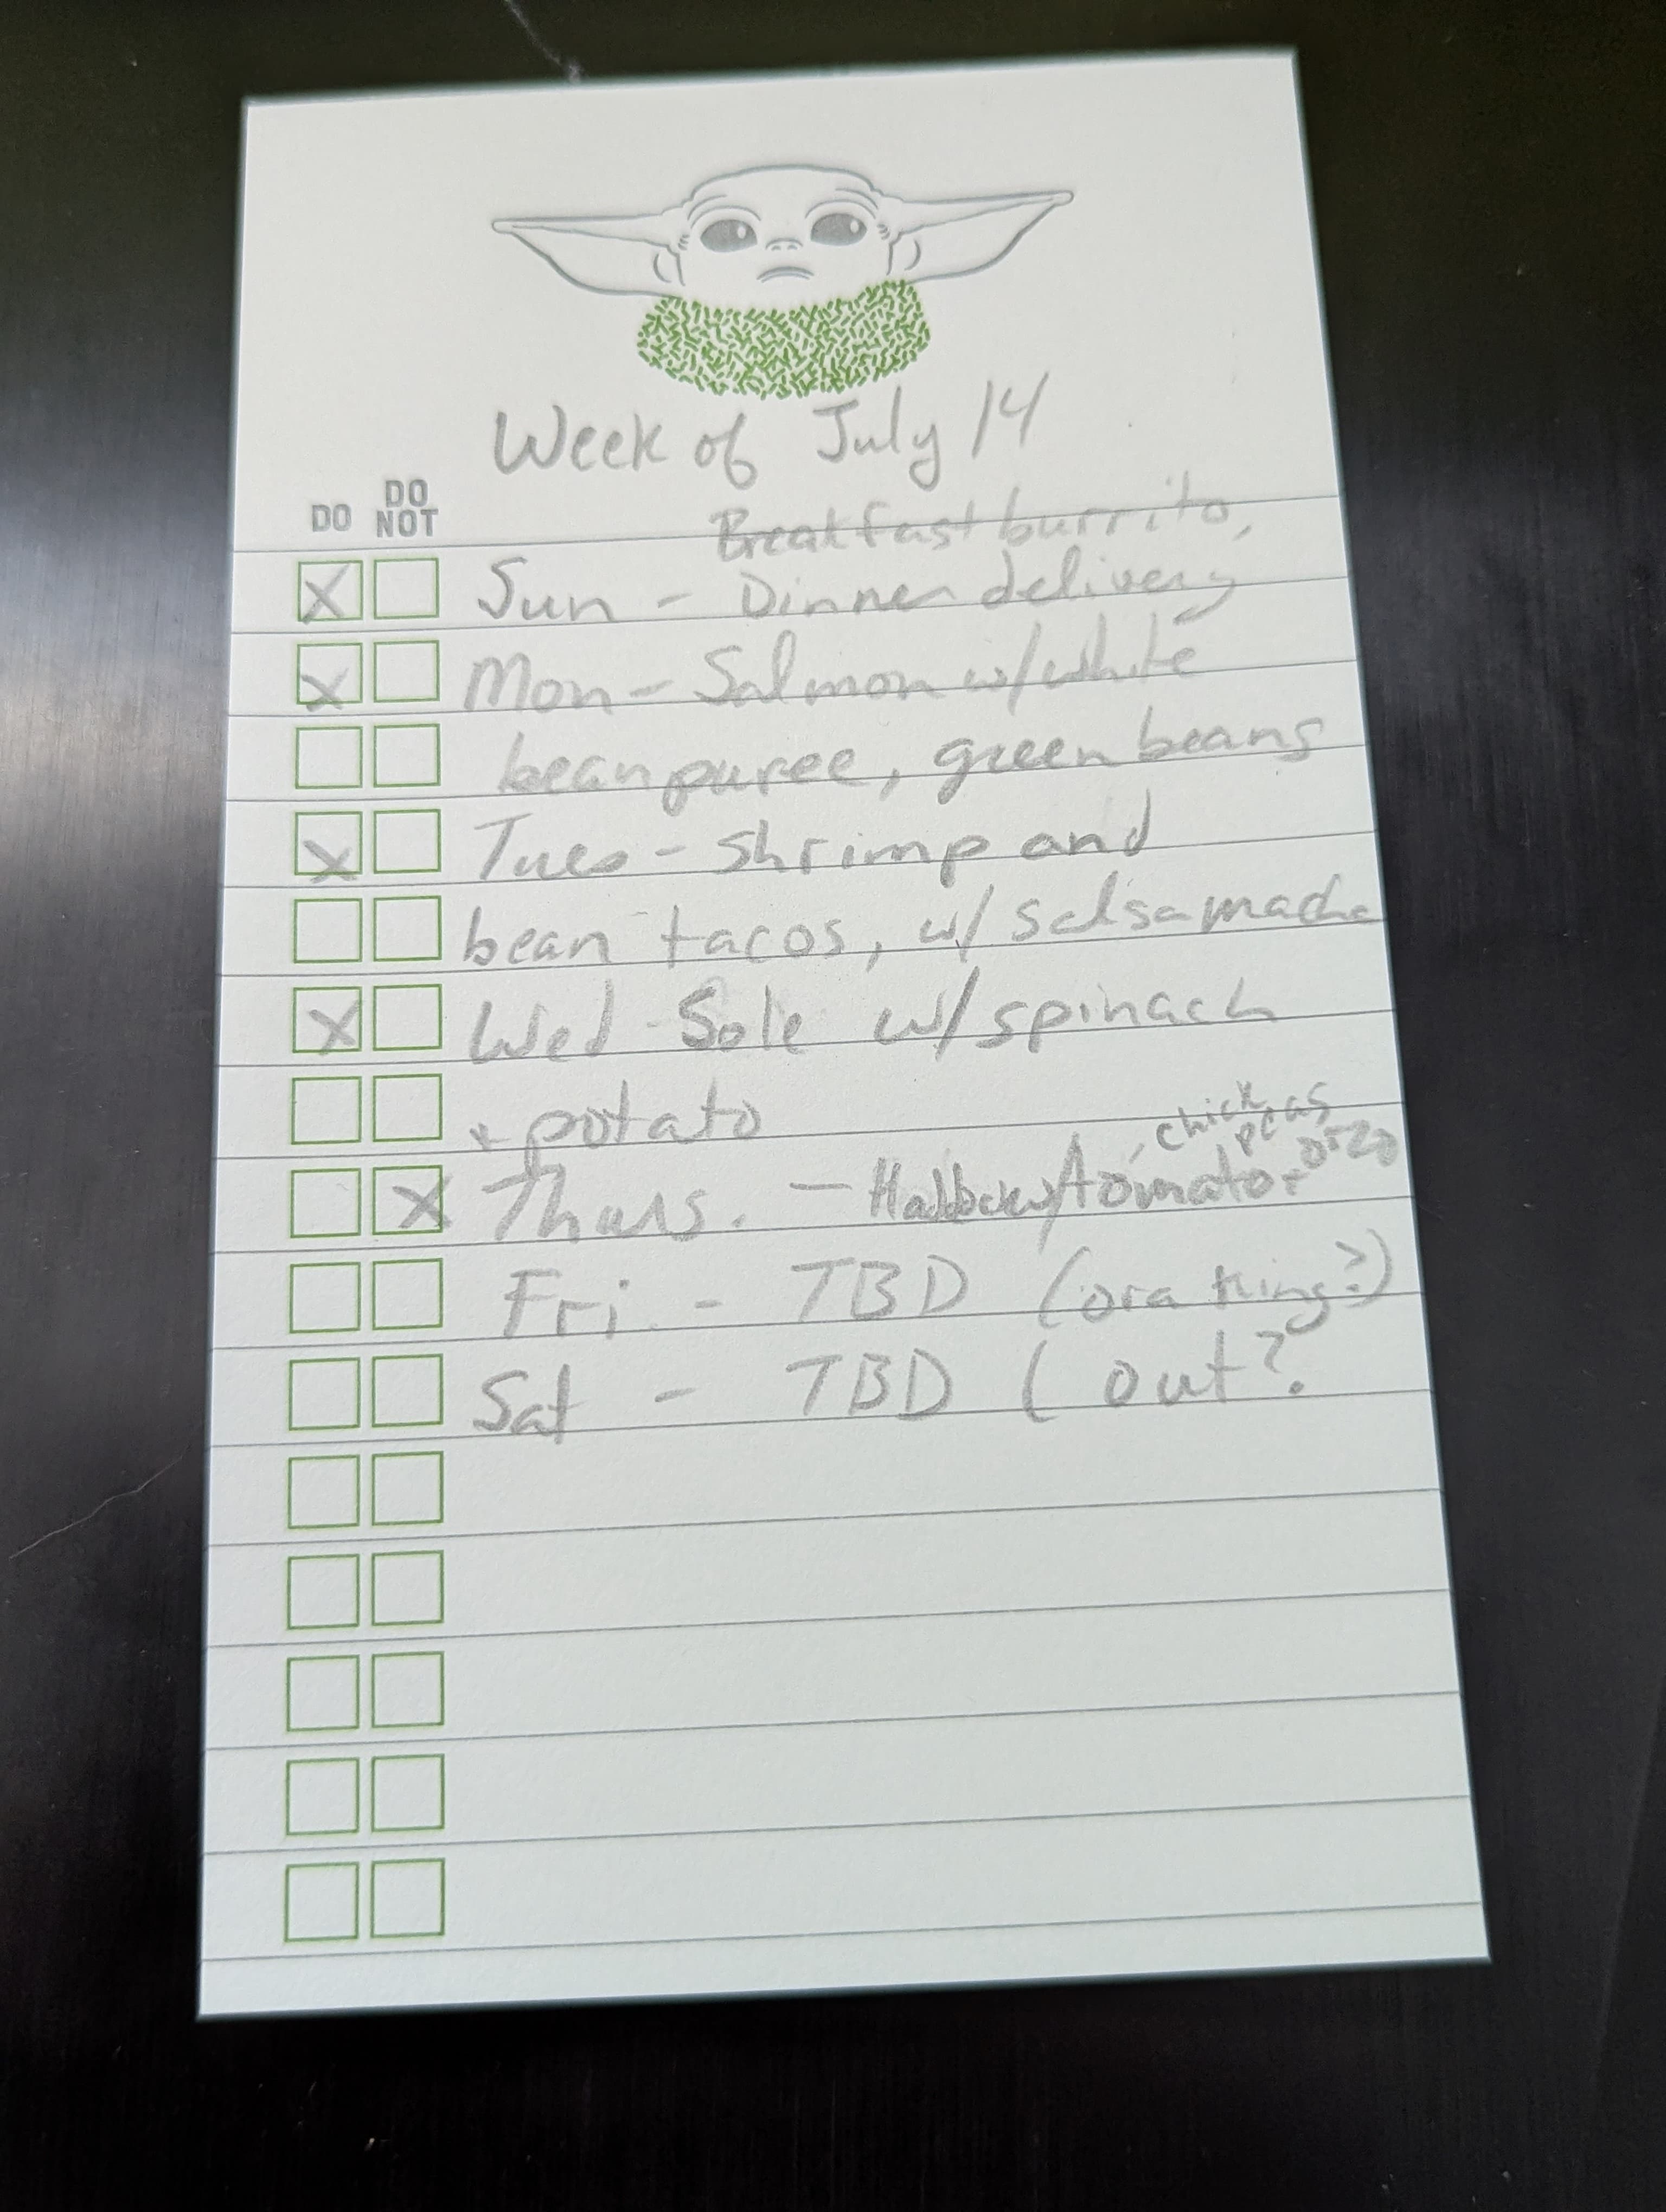 Week of July 14
DO
DO
NOT
Breakfast burrito,
Sun - Dinner delivery
Mon - Salmon w/ white
bean puree, green beans
Tues - shrimp and
bean tacos, w/ salsa macha
Wed - Sole w/ spinach
+ potato
, chick
peas
Thurs. - w/ tomato + orzo
Fri - TBD (ora king?)
Sat - TBD ( out?